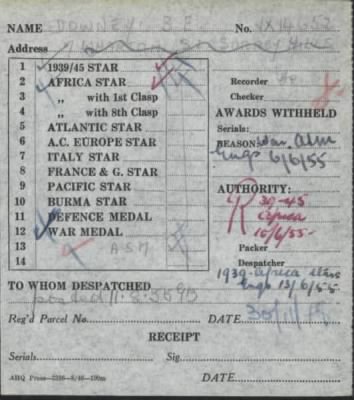 NAME DOWNEY S.E. No. VX14652
Address
1 1939/45 STAR
2 AFRICA STAR
3 ,, with 1st Clasp
4 ,, with 8th Clasp
5 ATLANTIC STAR
6 A.C. EUROPE STAR
7 ITALY STAR
8 FRANCE & G. STAR
9 PACIFIC STAR
10 BURMA STAR
11 DEFENCE MEDAL
12 WAR MEDAL
13 ASM
14
Recorder
Checker
AWARDS WITHHELD
Serials:
REASON: War, ASM
Engs 6/6/55
AUTHORITY:
R 39-45
Africa
10/6/55
Packer
Despatcher
1939-Africa stars
Engs 13/6/55
TO WHOM DESPATCHED
posted 11.8.55
Reg'd Parcel No. DATE
RECEIPT
Serials Sig.
AHQ Press—2286—8/48—100m DATE